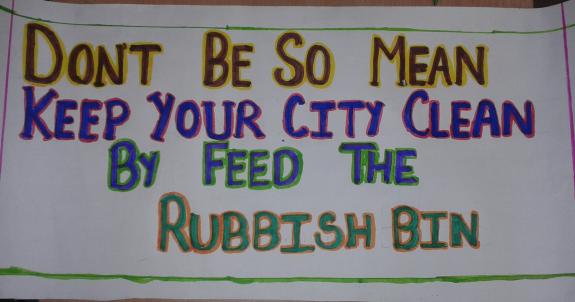 DONT BE SO MEAN
KEEP YOUR CITY CLEAN
BY FEED THE
RUBBISH BIN